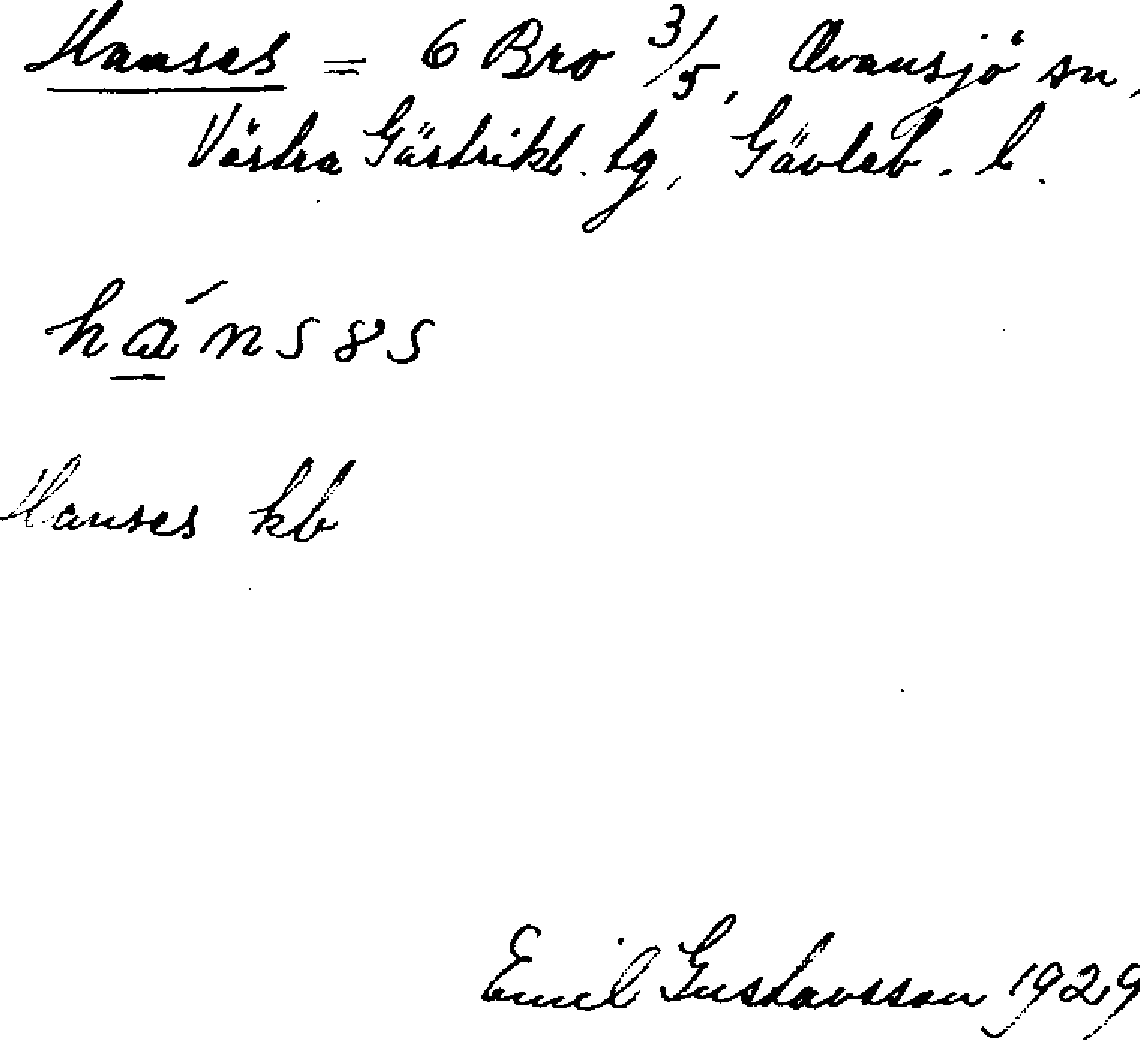 Hanses = 6 Bro 3/5, Ovansjö sn,
Västra Gästrikl. tg, Gävleb. l.
hánsəs
Hanses kb
Emil Gustavsson 1929